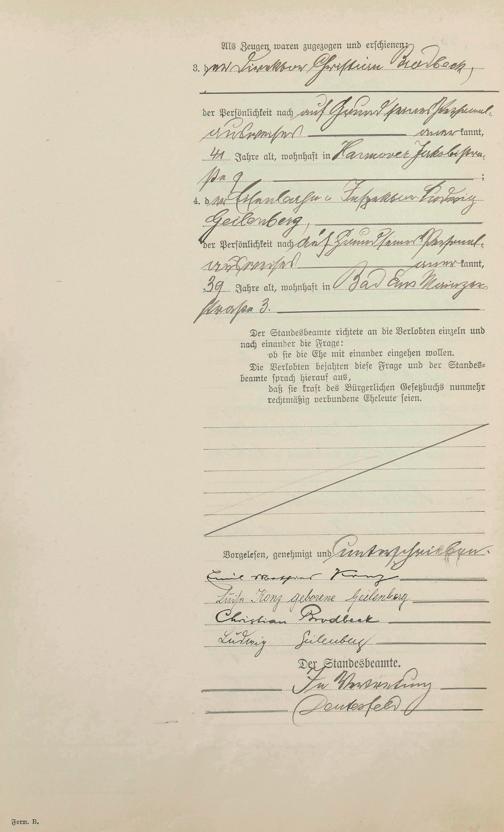 Als Zeugen waren zugezogen und erschienen:
3. der Direktor Christian Brodbeck,
der Persönlichkeit nach auf Grund seines Personal-
ausweises anerkannt,
41 Jahre alt, wohnhaft in Hannover Jakobistra-
ße 9 ;
4. der Eisenbahn-Inspektor Ludwig
Geilenberg,
der Persönlichkeit nach auf Grund seines Personal-
ausweises anerkannt,
39 Jahre alt, wohnhaft in Bad Ems Mainzer-
straße 3.
Der Standesbeamte richtete an die Verlobten einzeln und
nach einander die Frage:
ob sie die Ehe mit einander eingehen wollen.
Die Verlobten bejahten diese Frage und der Standes-
beamte sprach hierauf aus,
daß sie kraft des Bürgerlichen Gesetzbuchs nunmehr
rechtmäßig verbundene Eheleute seien.
Vorgelesen, genehmigt und unterschrieben.
Emil Konz
Luise Konz geborene Geilenberg
Christian Brodbeck
Ludwig Geilenberg
Der Standesbeamte.
In Vertretung
Form. B.